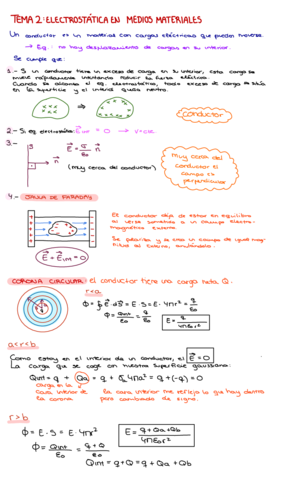 TEMA 2: ELECTROSTÁTICA EN MEDIOS MATERIALES
Un conductor es un material con cargas eléctricas que pueden moverse.
→ Eq.: no hay desplazamiento de cargas en su interior.
Se cumple que:
1.- Si un conductor tiene un exceso de carga en su interior, esta carga se
mueve rápidamente
Cuando se alcanza el eq. electrostático, todo exceso de carga se sitúa
en la superficie y el interior queda neutro.
conductor
2.- Si eq electrostático: E int = 0 → V=cte.
3.-
E = σ/ε₀ n
(muy cerca del conductor)
Muy cerca del
conductor el
campo es
perpendicular
4.- JAULA DE FARADAY
El conductor deja de estar en equilibrio
al verse sometido a un campo electro-
magnético externo.
Se polariza y se crea un campo de igual mag-
nitud al externo, anulándolo.
E = E int = 0
CORONA CIRCULAR: el conductor tiene una carga neta, Q.
r<a
Φ = ∮ E dS = E·S = E·4πr² = q/ε₀
Φ = Qint/ε₀ = q/ε₀
E = q/4πε₀r²
a<r<b
Como estoy en el interior de un conductor, el E = 0
La carga que se coge en nuestra superficie gaussiana:
Qint = q + Qa = q + σa 4πa² = q + (-q) = 0
carga en la
cara interior de
la corona
la cara interior me refleja lo que hay dentro
pero cambiado de signo.
r>b
Φ = E·S = E·4πr²
Φ = Qint/ε₀ = q+Q/ε₀
E = q+Qa+Qb/4πε₀r²
Qint = q+Q = q+Qa+Qb